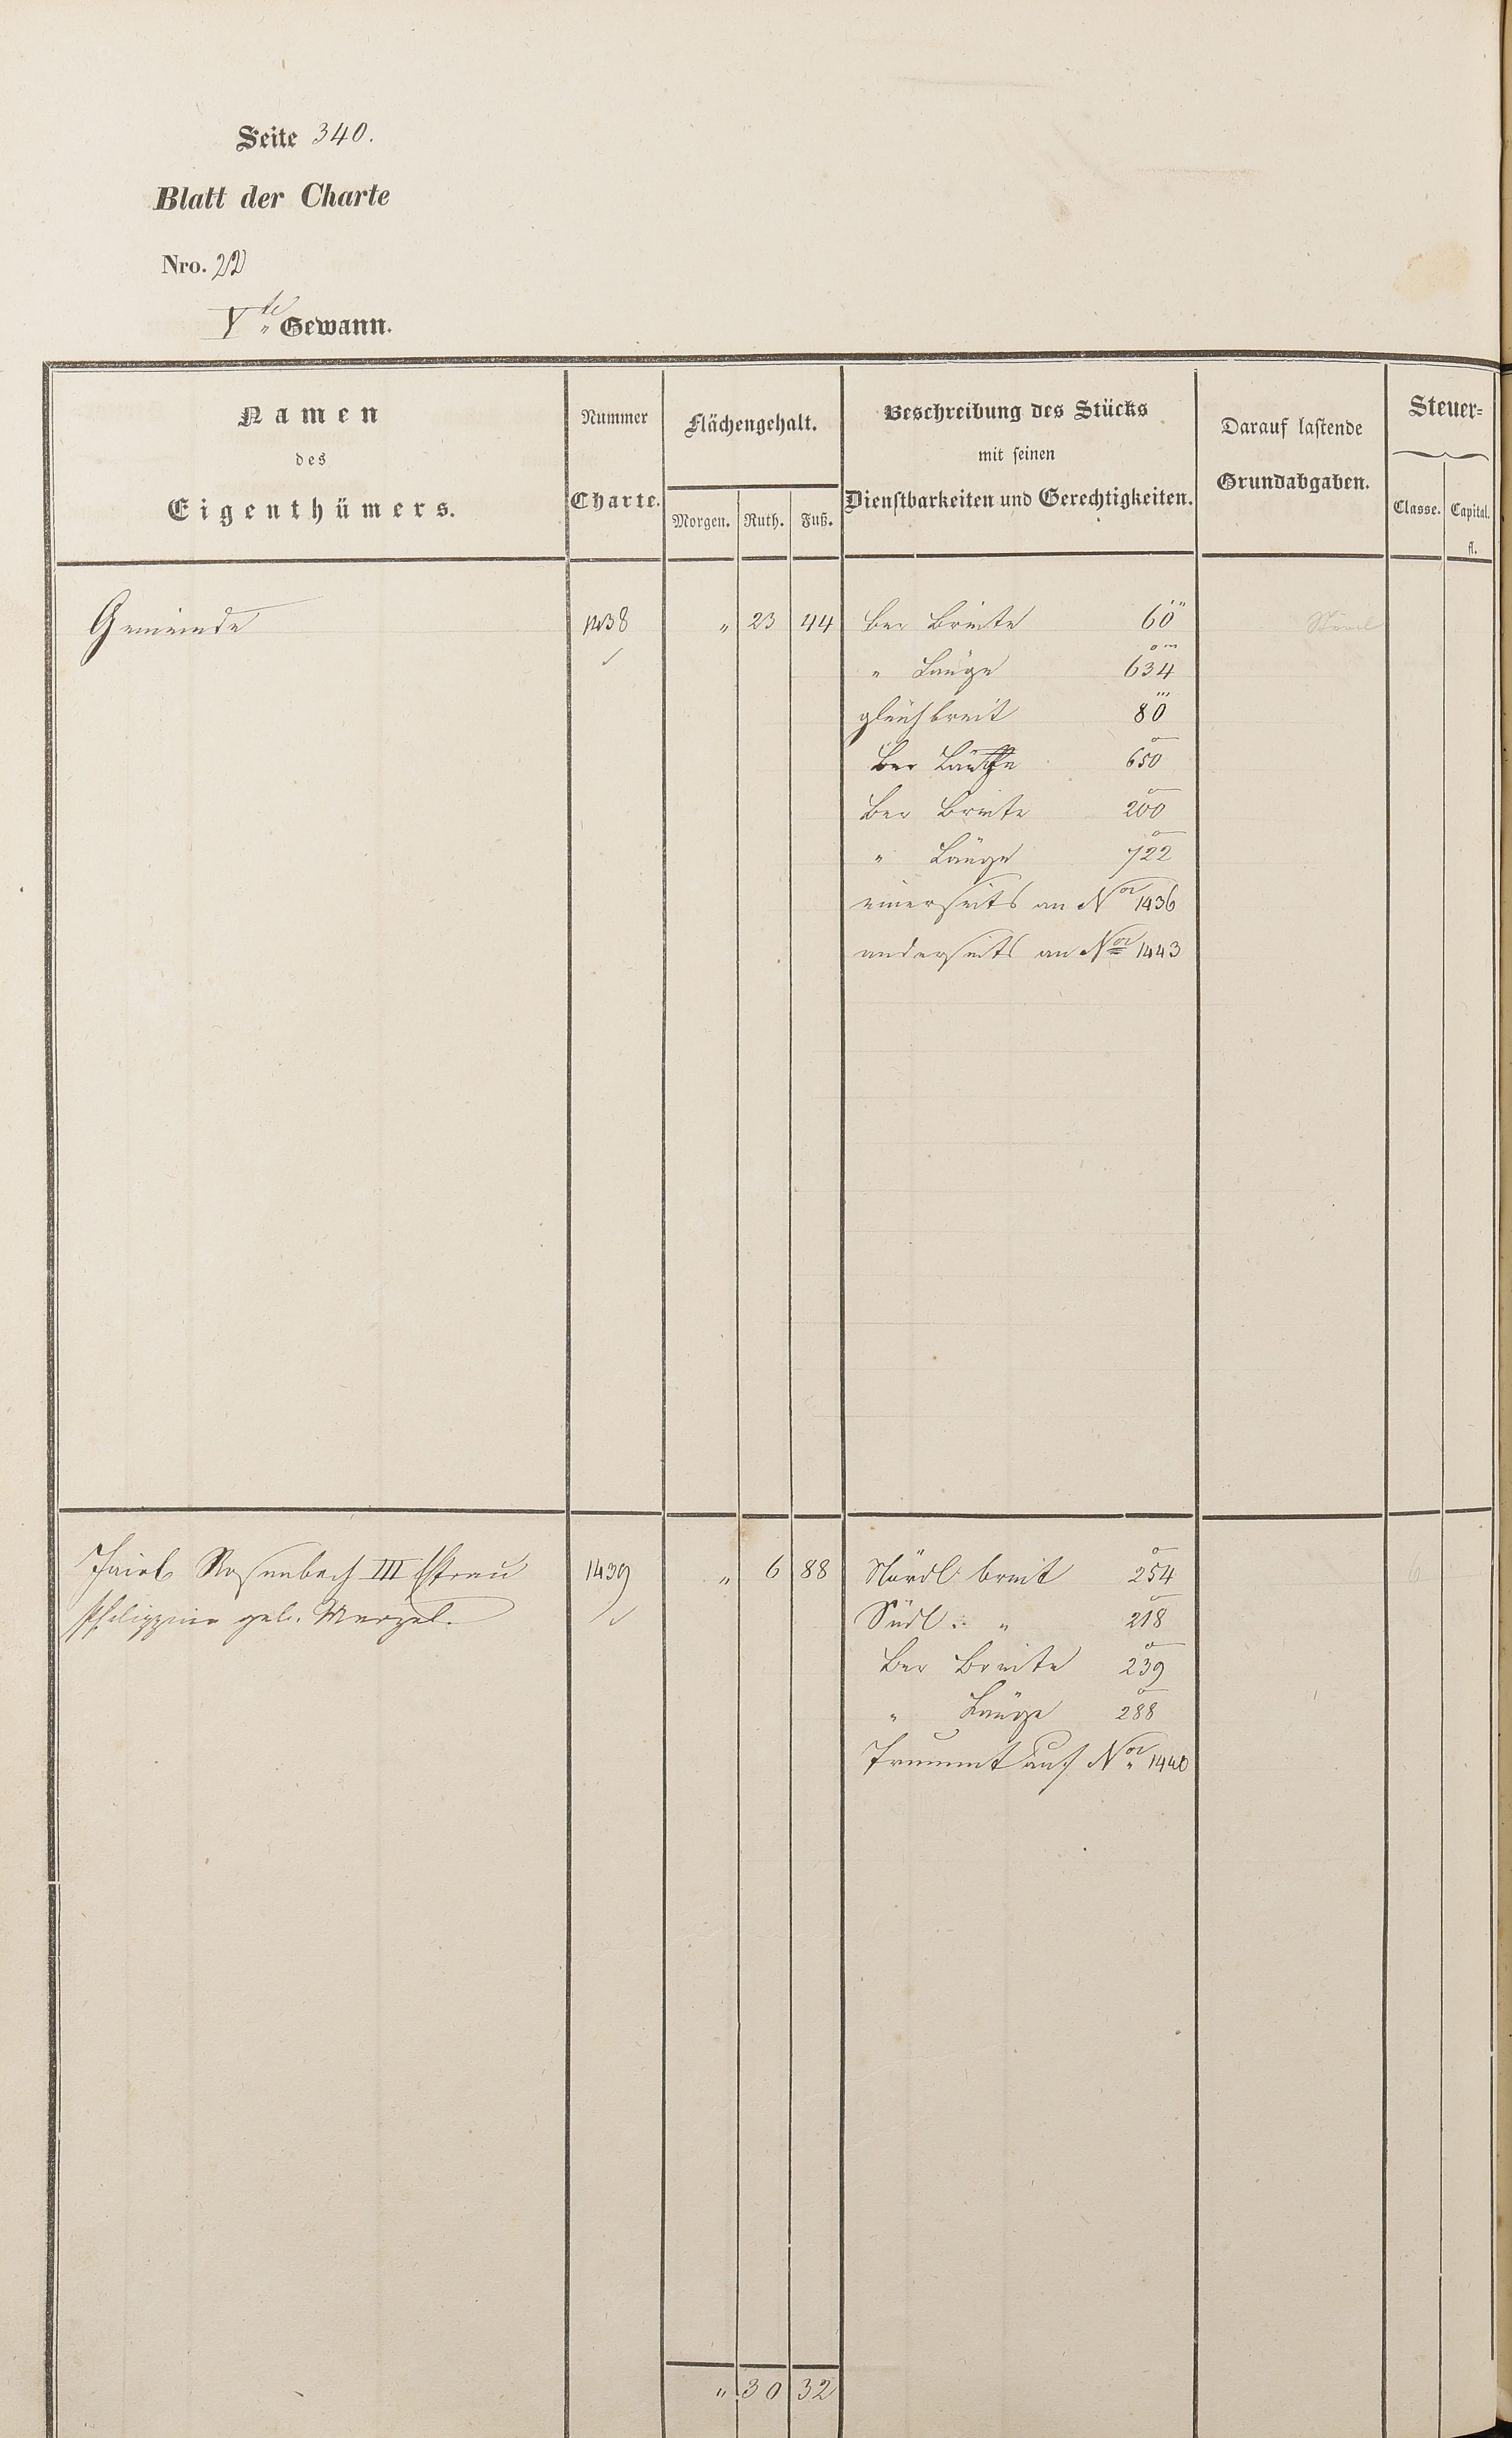 Seite 340.
Blatt der Charte
Nro. 22
Vte Gewann.
Namen
des
Eigenthümers.
Nummer
Charte.
Flächengehalt.
Morgen. Ruth. Fuß.
Beschreibung des Stücks
mit seinen
Dienstbarkeiten und Gerechtigkeiten.
Darauf lastende
Grundabgaben.
Steuer=
Classe. Capital.
fl.
Gemeinde 1438 " 23 44 Ber Breite 60
" Länge 634
gleichbreit 80
Ber Länge 650
Ber Breite 200
" Länge 722
einerseits an Nro 1436
anderseits an Nro 1443
Jacob Rosenbach III Ehefrau 1439 " 6 88 Nördl: breit 254
Philippine geb. Menzel. Südl: " 218
Ber Breite 239
" Länge 288
auf Nro 1440
" 30 32